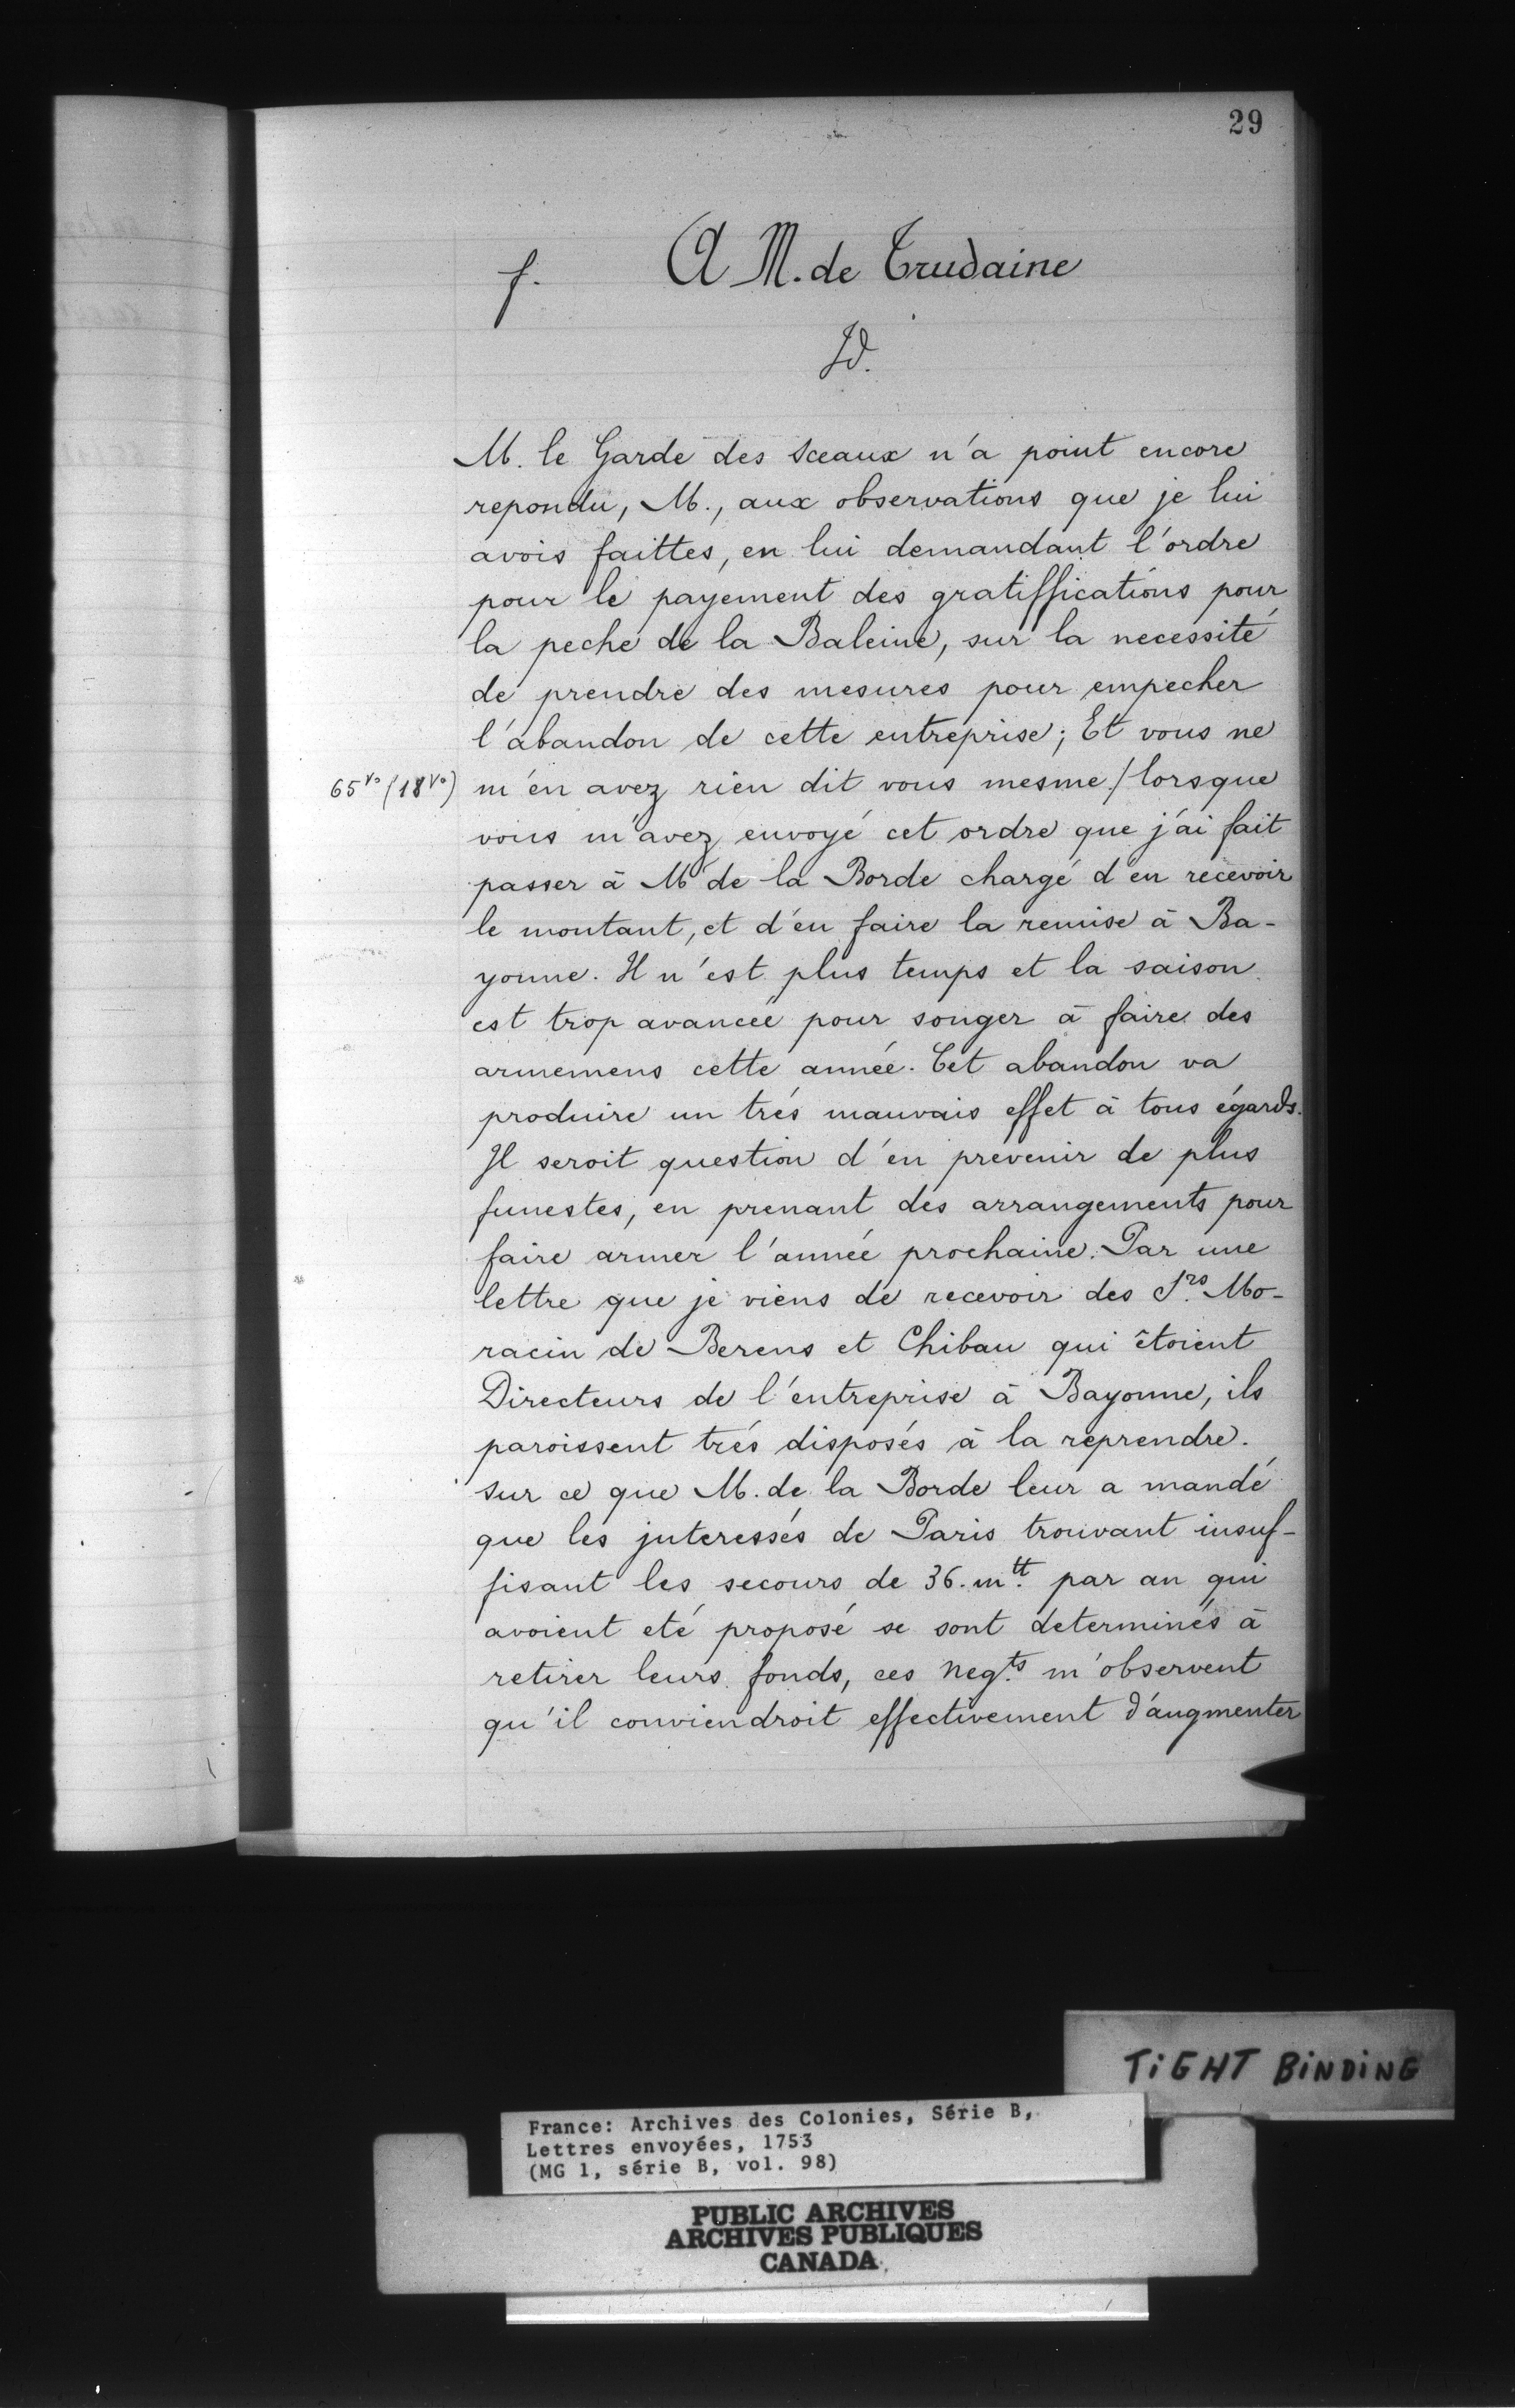 29
f. A M. de Trudaine
Id.
M. le Garde des Sceaux n'a point encore
repondu, M., aux observations que je lui
avois faittes, en lui demandant l'ordre
pour le payement des gratiffications pour
la peche de la Baleine, sur la necessité
de prendre des mesures pour empecher
l'abandon de cette entreprise; Et vous ne
65vo (18vo) m'en avez rien dit vous mesme / lorsque
vous m'avez envoyé cet ordre que j'ai fait
passer à M de la Borde chargé d'en recevoir
le montant, et d'en faire la remise à Ba-
yonne. Il n'est plus temps et la saison
est trop avancée pour songer à faire des
armemens cette année. Cet abandon va
produire un trés mauvais effet à tous égards.
Il seroit question d'en prevenir de plus
funestes, en prenant des arrangements pour
faire armer l'année prochaine. Par une
lettre que je viens de recevoir des Srs. Mo-
racin de Berens et Chibau qui êtoient
Directeurs de l'entreprise à Bayonne, ils
paroissent trés disposés à la reprendre.
Sur ce que M. de la Borde leur a mandé
que les jnteressés de Paris trouvant insuf-
fisant les secours de 36. mtt. par an qui
avoient eté proposé se sont determinés à
retirer leurs fonds, ces Negts. m'observent
qu'il conviendroit effectivement d'augmenter
TiGHT BiNDiNG
France: Archives des Colonies, Série B,
Lettres envoyées, 1753
(MG 1, série B, vol. 98)
PUBLIC ARCHIVES
ARCHIVES PUBLIQUES
CANADA